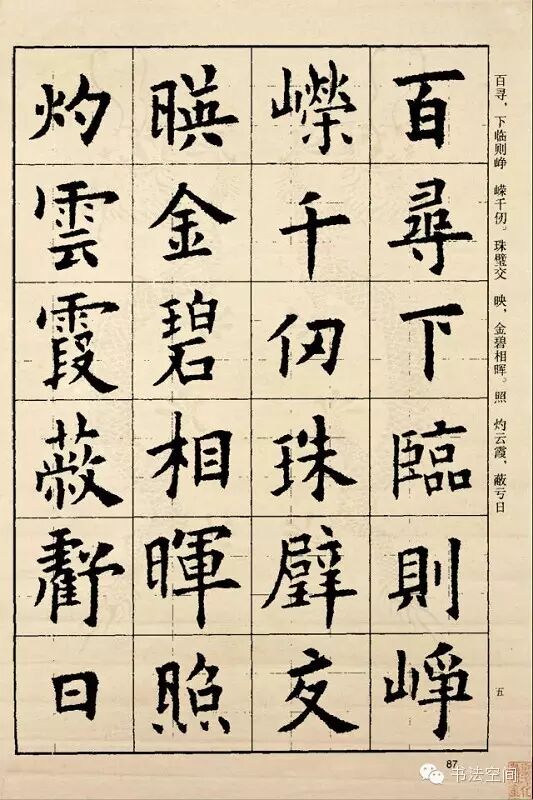 百尋下臨則崢
嶸千仞珠璧交
暎金碧相暉照
灼雲霞蔽虧日
百寻，下临则峥 嵘千仞。珠璧交 映，金碧相晖。照 灼云霞，蔽亏日
五
87
书法空间